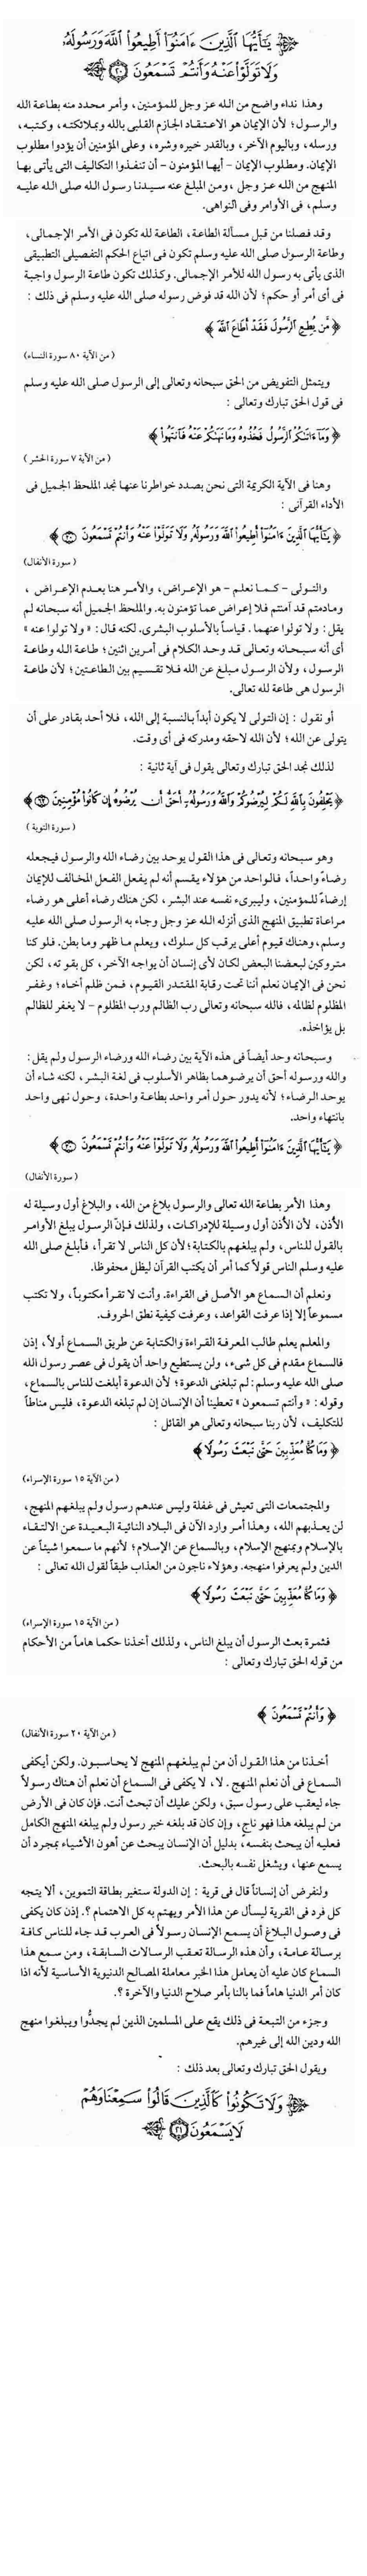 يَٰٓأَيُّهَا ٱلَّذِينَ ءَامَنُوٓا۟ أَطِيعُوا۟ ٱللَّهَ وَرَسُولَهُۥ
وَلَا تَوَلَّوْا۟ عَنْهُ وَأَنتُمْ تَسْمَعُونَ ۝٢٠
وهذا نداء واضح من الله عز وجل للمؤمنين، وأمر محدد منه بطاعة الله
والرسول؛ لأن الإيمان هو الاعتقاد الجازم القلبى بالله وبملائكته، وكتبه،
ورسله، وباليوم الآخر، وبالقدر خيره وشره، وعلى المؤمنين أن يؤدوا مطلوب
الإيمان. ومطلوب الإيمان – أيها المؤمنون – أن تنفذوا التكاليف التى يأتى بها
المنهج من الله عز وجل ، ومن المبلغ عنه سيدنا رسول الله صلى الله عليه
وسلم، فى الأوامر وفى النواهى.
وقد فصلنا من قبل مسألة الطاعة، الطاعة لله تكون فى الأمر الإجمالى،
وطاعة الرسول صلى الله عليه وسلم تكون فى اتباع الحكم التفصيلى التطبيقى
الذى يأتى به رسول الله للأمر الإجمالى. وكذلك تكون طاعة الرسول واجبة
فى أى أمر أو حكم؛ لأن الله قد فوض رسوله صلى الله عليه وسلم فى ذلك :
﴿ مَّن يُطِعِ ٱلرَّسُولَ فَقَدْ أَطَاعَ ٱللَّهَ ﴾
( من الآية ٨٠ سورة النساء)
ويتمثل التفويض من الحق سبحانه وتعالى إلى الرسول صلى الله عليه وسلم
فى قول الحق تبارك وتعالى :
﴿ وَمَآ ءَاتَىٰكُمُ ٱلرَّسُولُ فَخُذُوهُ وَمَا نَهَىٰكُمْ عَنْهُ فَٱنتَهُوا۟ ﴾
( من الآية ٧ سورة الحشر )
وهنا فى الآية الكريمة التى نحن بصدد خواطرنا عنها نجد الملحظ الجميل فى
الأداء القرآنى :
﴿ يَٰٓأَيُّهَا ٱلَّذِينَ ءَامَنُوٓا۟ أَطِيعُوا۟ ٱللَّهَ وَرَسُولَهُۥ وَلَا تَوَلَّوْا۟ عَنْهُ وَأَنتُمْ تَسْمَعُونَ ۝٢٠ ﴾
( سورة الأنفال)
والتولى – كما نعلم – هو الإعراض، والأمر هنا بعدم الإعراض ،
ومادمتم قد آمنتم فلا إعراض عما تؤمنون به. والملحظ الجميل أنه سبحانه لم
يقل : ولا تولوا عنهما . قياساً بالأسلوب البشرى. لكنه قال : « ولا تولوا عنه »
أى أنه سبحانه وتعالى قد وحد الكلام فى أمرين اثنين؛ طاعة الله وطاعة
الرسول، ولأن الرسول مبلغ عن الله فلا تقسيم بين الطاعتين؛ لأن طاعة
الرسول هى طاعة لله تعالى.
أو نقول : إن التولى لا يكون أبداً بالنسبة إلى الله، فلا أحد بقادر على أن
يتولى عن الله؛ لأن الله لاحقه ومدركه فى أى وقت.
لذلك نجد الحق تبارك وتعالى يقول فى آية ثانية :
﴿ يَحْلِفُونَ بِٱللَّهِ لَكُمْ لِيُرْضُوكُمْ وَٱللَّهُ وَرَسُولُهُۥٓ أَحَقُّ أَن يُرْضُوهُ إِن كَانُوا۟ مُؤْمِنِينَ ۝٦٢ ﴾
( سورة التوبة )
وهو سبحانه وتعالى فى هذا القول يوحد بين رضاء الله والرسول فيجعله
رضاءً واحداً، فالواحد من هؤلاء يقسم أنه لم يفعل الفعل المخالف للإيمان
إرضاءً للمؤمنين، وليبرىء نفسه عند البشر، لكن هناك رضاء أعلى هو رضاء
مراعاة تطبيق المنهج الذى أنزله الله عز وجل وجاء به الرسول صلى الله عليه
وسلم، وهناك قيوم أعلى يرقب كل سلوك، ويعلم ما ظهر وما بطن. فلو كنا
متروكين لبعضنا البعض لكان لأى إنسان أن يواجه الآخر، كل بقوته، لكن
نحن فى الإيمان نعلم أننا تحت رقابة المقتدر القيوم، فمن ظلم أخاه؛ وغفر
المظلوم لظالمه، فالله سبحانه وتعالى رب الظالم ورب المظلوم – لا يغفر للظالم
بل يؤاخذه.
وسبحانه وحد أيضاً فى هذه الآية بين رضاء الله ورضاء الرسول ولم يقل :
والله ورسوله أحق أن يرضوهما بظاهر الأسلوب فى لغة البشر، لكنه شاء أن
يوحد الرضاء؛ لأنه يدور حول أمر واحد بطاعة واحدة، وحول نهى واحد
بانتهاء واحد.
﴿ يَٰٓأَيُّهَا ٱلَّذِينَ ءَامَنُوٓا۟ أَطِيعُوا۟ ٱللَّهَ وَرَسُولَهُۥ وَلَا تَوَلَّوْا۟ عَنْهُ وَأَنتُمْ تَسْمَعُونَ ۝٢٠ ﴾
( سورة الأنفال)
وهذا الأمر بطاعة الله تعالى والرسول بلاغ من الله، والبلاغ أول وسيلة له
الأذن، لأن الأذن أول وسيلة للإدراكات، ولذلك فإنّ الرسول يبلغ الأوامر
بالقول للناس، ولم يبلغهم بالكتابة؛ لأن كل الناس لا تقرأ، فأبلغ صلى الله
عليه وسلم الناس قولاً كما أمر أن يكتب القرآن ليظل محفوظا.
ونعلم أن السماع هو الأصل فى القراءة. وأنت لا تقرأ مكتوباً، ولا تكتب
مسموعاً إلا إذا عرفت القواعد، وعرفت كيفية نطق الحروف.
والمعلم يعلم طالب المعرفة القراءة والكتابة عن طريق السماع أولاً، إذن
فالسماع مقدم فى كل شىء، ولن يستطيع واحد أن يقول فى عصر رسول الله
صلى الله عليه وسلم: لم تبلغنى الدعوة؛ لأن الدعوة أبلغت للناس بالسماع،
وقوله : « وأنتم تسمعون » تعطينا أن الإنسان إن لم تبلغه الدعوة، فليس مناطاً
للتكليف، لأن ربنا سبحانه وتعالى هو القائل :
﴿ وَمَا كُنَّا مُعَذِّبِينَ حَتَّىٰ نَبْعَثَ رَسُولًا ﴾
( من الآية ١٥ سورة الإسراء)
والمجتمعات التى تعيش فى غفلة وليس عندهم رسول ولم يبلغهم المنهج،
لن يعذبهم الله، وهذا أمر وارد الآن فى البلاد النائية البعيدة عن الالتقاء
بالإسلام وبمنهج الإسلام، وبالسماع عن الإسلام؛ لأنهم ما سمعوا شيئاً عن
الدين ولم يعرفوا منهجه. وهؤلاء ناجون من العذاب طبقاً لقول الله تعالى :
﴿ وَمَا كُنَّا مُعَذِّبِينَ حَتَّىٰ نَبْعَثَ رَسُولًا ﴾
( من الآية ١٥ سورة الإسراء)
فثمرة بعث الرسول أن يبلغ الناس، ولذلك أخذنا حكما هاماً من الأحكام
من قوله الحق تبارك وتعالى :
﴿ وَأَنتُمْ تَسْمَعُونَ ﴾
( من الآية ٢٠ سورة الأنفال)
أخذنا من هذا القول أن من لم يبلغهم المنهج لا يحاسبون. ولكن أيكفى
السماع فى أن نعلم المنهج . لا، لا يكفى فى السماع أن نعلم أن هناك رسولاً
جاء ليعقب على رسول سبق، ولكن عليك أن تبحث أنت. فإن كان فى الأرض
من لم يبلغه هذا فهو ناجٍ، وإن كان قد بلغه خبر رسول ولم يبلغه المنهج الكامل
فعليه أن يبحث بنفسه، بدليل أن الإنسان يبحث عن أهون الأشياء بمجرد أن
يسمع عنها، ويشغل نفسه بالبحث.
ولنفرض أن إنساناً قال فى قرية : إن الدولة ستغير بطاقة التموين، ألا يتجه
كل فرد فى القرية ليسأل عن هذا الأمر ويهتم به كل الاهتمام ؟. إذن كان يكفى
فى وصول البلاغ أن يسمع الإنسان رسولاً فى العرب قد جاء للناس كافة
برسالة عامة، وأن هذه الرسالة تعقب الرسالات السابقة، ومن سمع هذا
السماع كان عليه أن يعامل هذا الخبر معاملة المصالح الدنيوية الأساسية لأنه اذا
كان أمر الدنيا هاماً فما بالنا بأمر صلاح الدنيا والآخرة ؟.
وجزء من التبعة فى ذلك يقع على المسلمين الذين لم يجدُّوا ويبلغوا منهج
الله ودين الله إلى غيرهم.
ويقول الحق تبارك وتعالى بعد ذلك :
وَلَا تَكُونُوا۟ كَٱلَّذِينَ قَالُوا۟ سَمِعْنَا وَهُمْ
لَا يَسْمَعُونَ ۝٢١